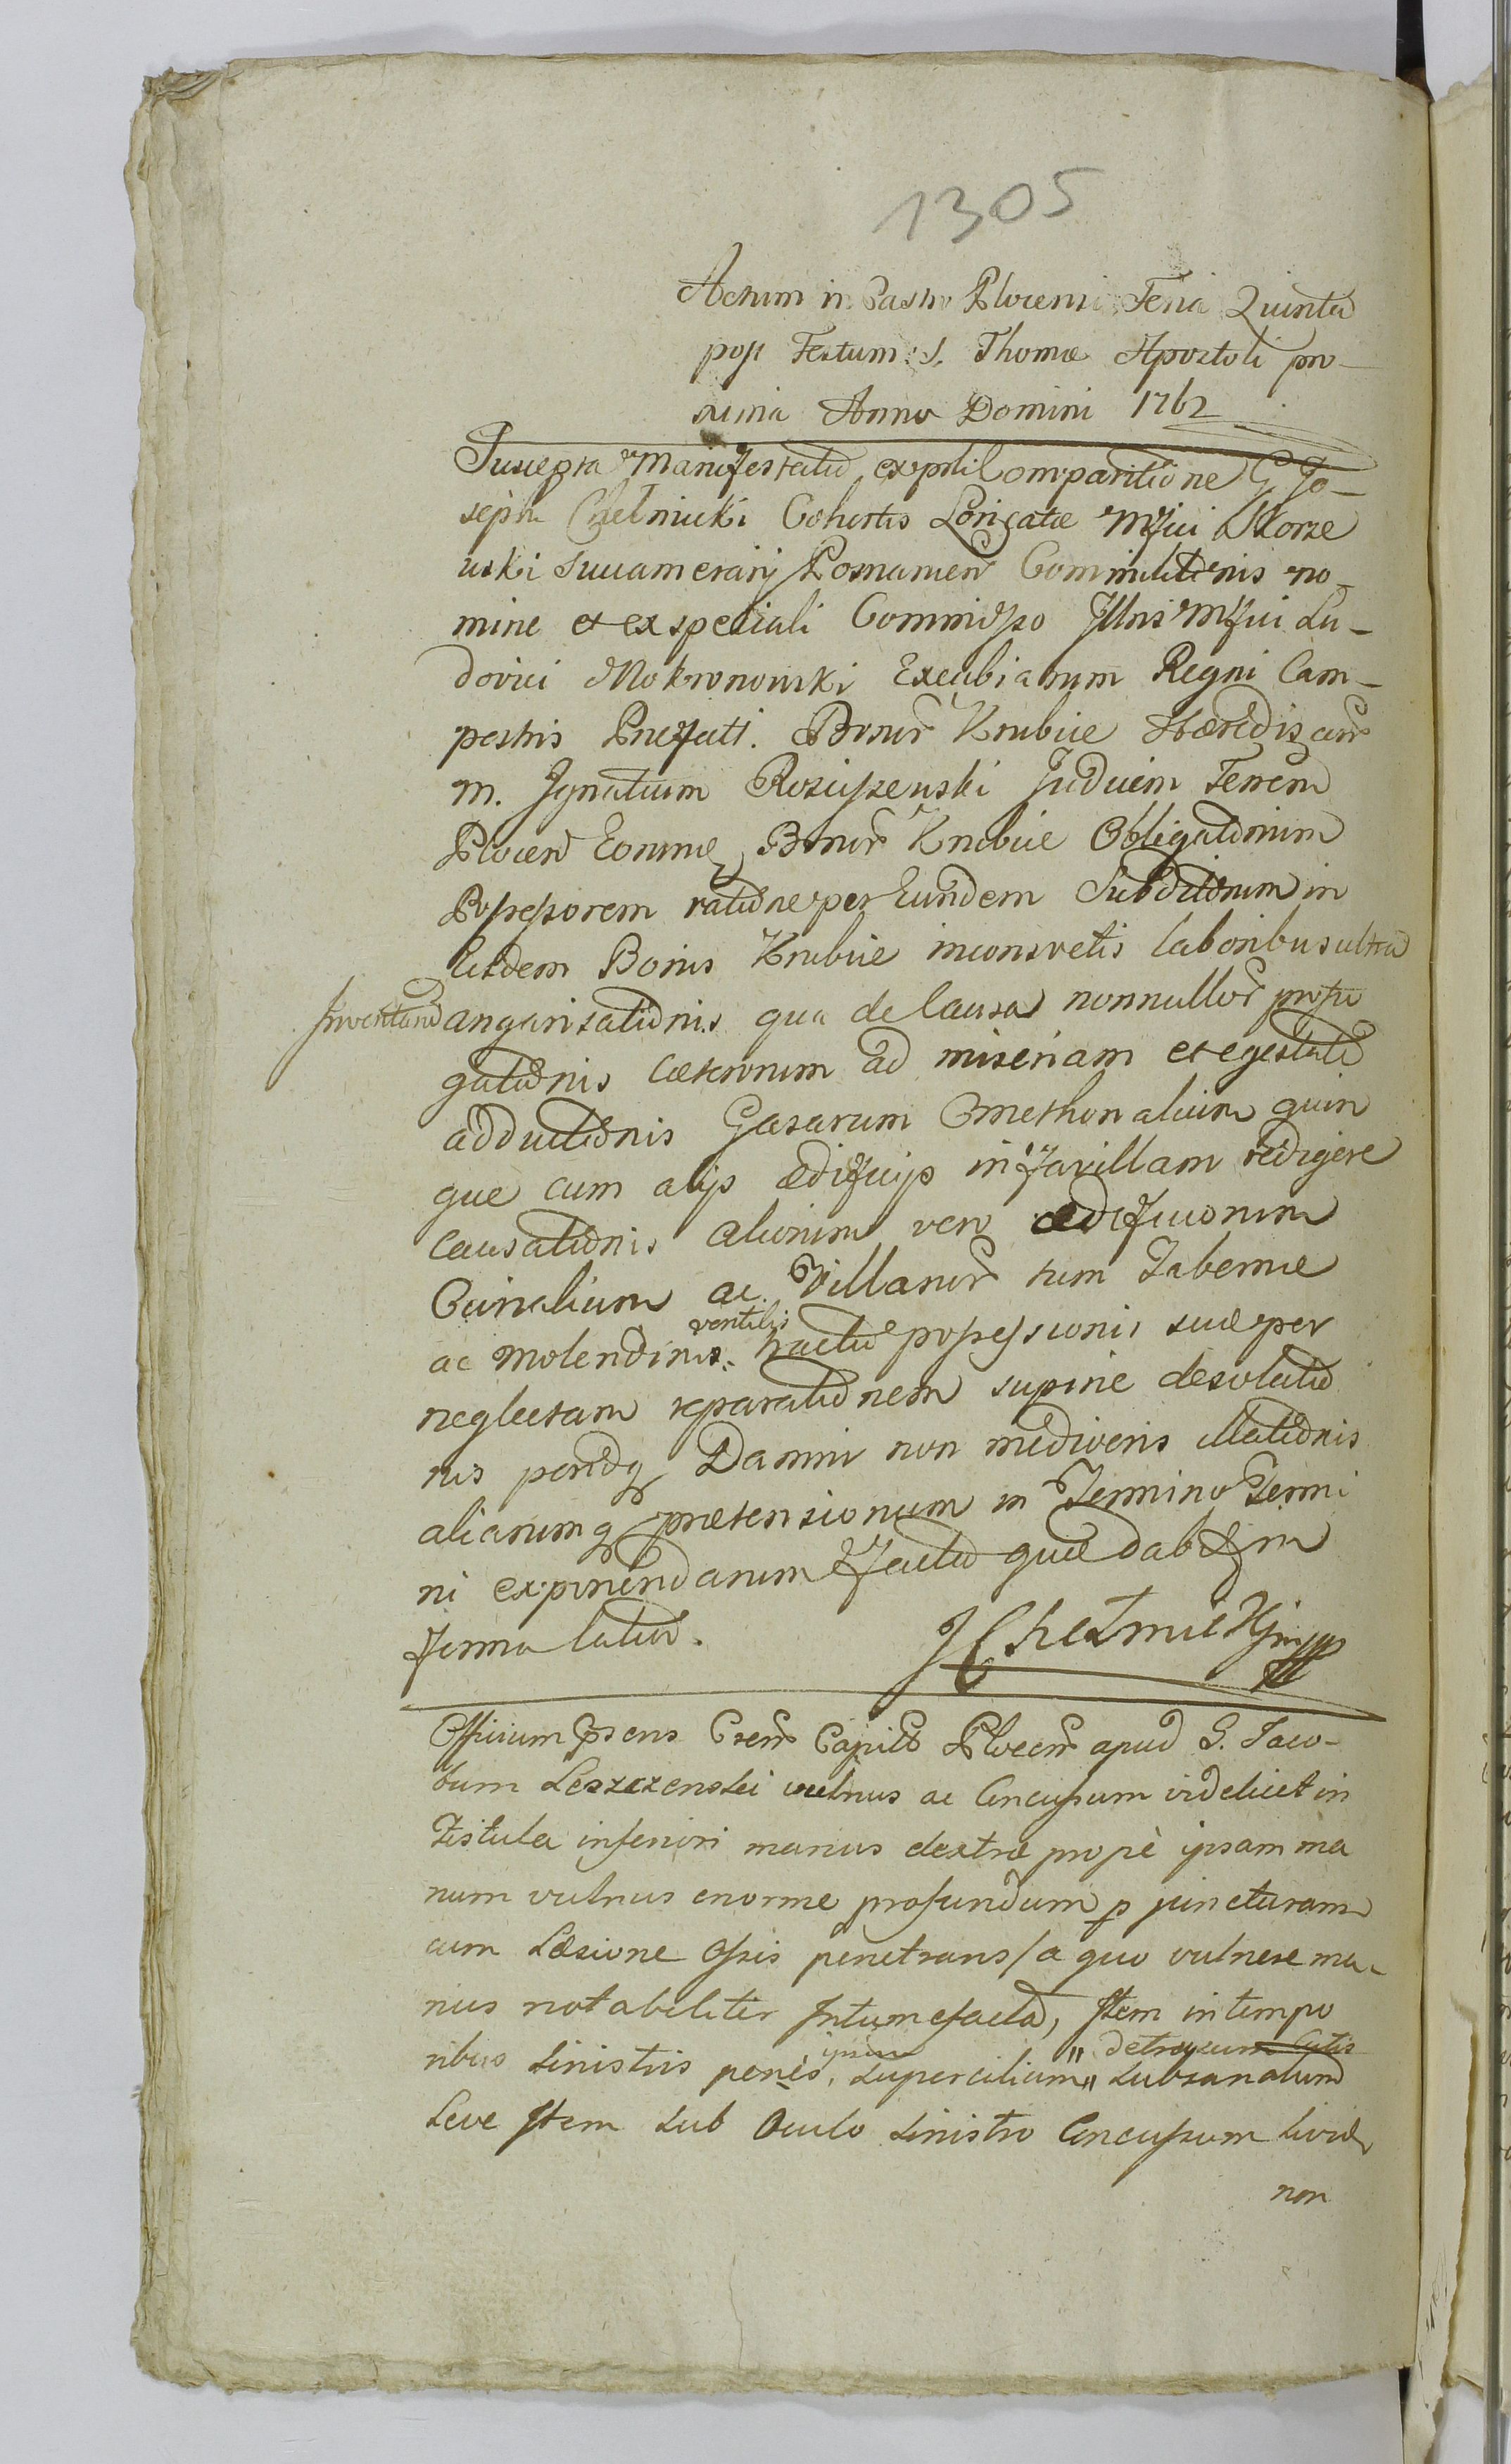 1305
Actum in Castro Plocensi Feria Quinta
post Festum S. Thomæ Apostoli pro-
xima Anno Domini 1762
Suscepta Manifestatio ex psli Comparitione G Jo-
sephi Chelmicki Cohortis Loricatæ Mfici Skorze
wski Succamerarij Posnanien Commilitonis no-
mine et ex speciali Commisso Illris Mfici Lu-
dovici Mokronowski Excubiarum Regni Cam-
pestris Præfati. Bonor Krubice Hæredis contra
M. Ignatium Rosciszewski Judicem Terrem
Plocen Eorumq Bonor Krubice Obligatorium
Possessorem ratione per Eundem Subditorum in
Eisdem Bonis Krubice inconsvetis laboribus ultra
Inventariu angarisationis qua de causa nonnullor profu
gationis cæterorum ad miseriam et egestate
adductionis Casarum Cmethonalium quin
que cum alijs ædificijs in favillam redigere
causationis aliorum vero ædificiorum
Curialium ac Villanor tum Tabernæ
ventilis
ac Molendini tractu possessionis suæ per
neglectam reparationem supine desolatio
nis proindeq Damni non mediocris illationis
aliarumq prætensionum in Termino Termi
ni exponendarum Facta quæ dabit in
forma latior.
J Chełmicki mpp
Officium psens Crens Capitle Plocens apud G. Jaco-
bum Leszczenski vulnus ac Concussum videlicet in
Fistula inferiori manus dextræ propè ipsam ma
num vulnus enorme profundum p puncturam
cum Læsione Ossis penetrans / a quo vulnere ma-
nus notabiliter Intumefacta, Item in tempo
ribus sinistris penès ipsum Supercilium " detrusum Cutis " Subsanatum
Leve Item sub Oculo sinistro Concussum livid
non